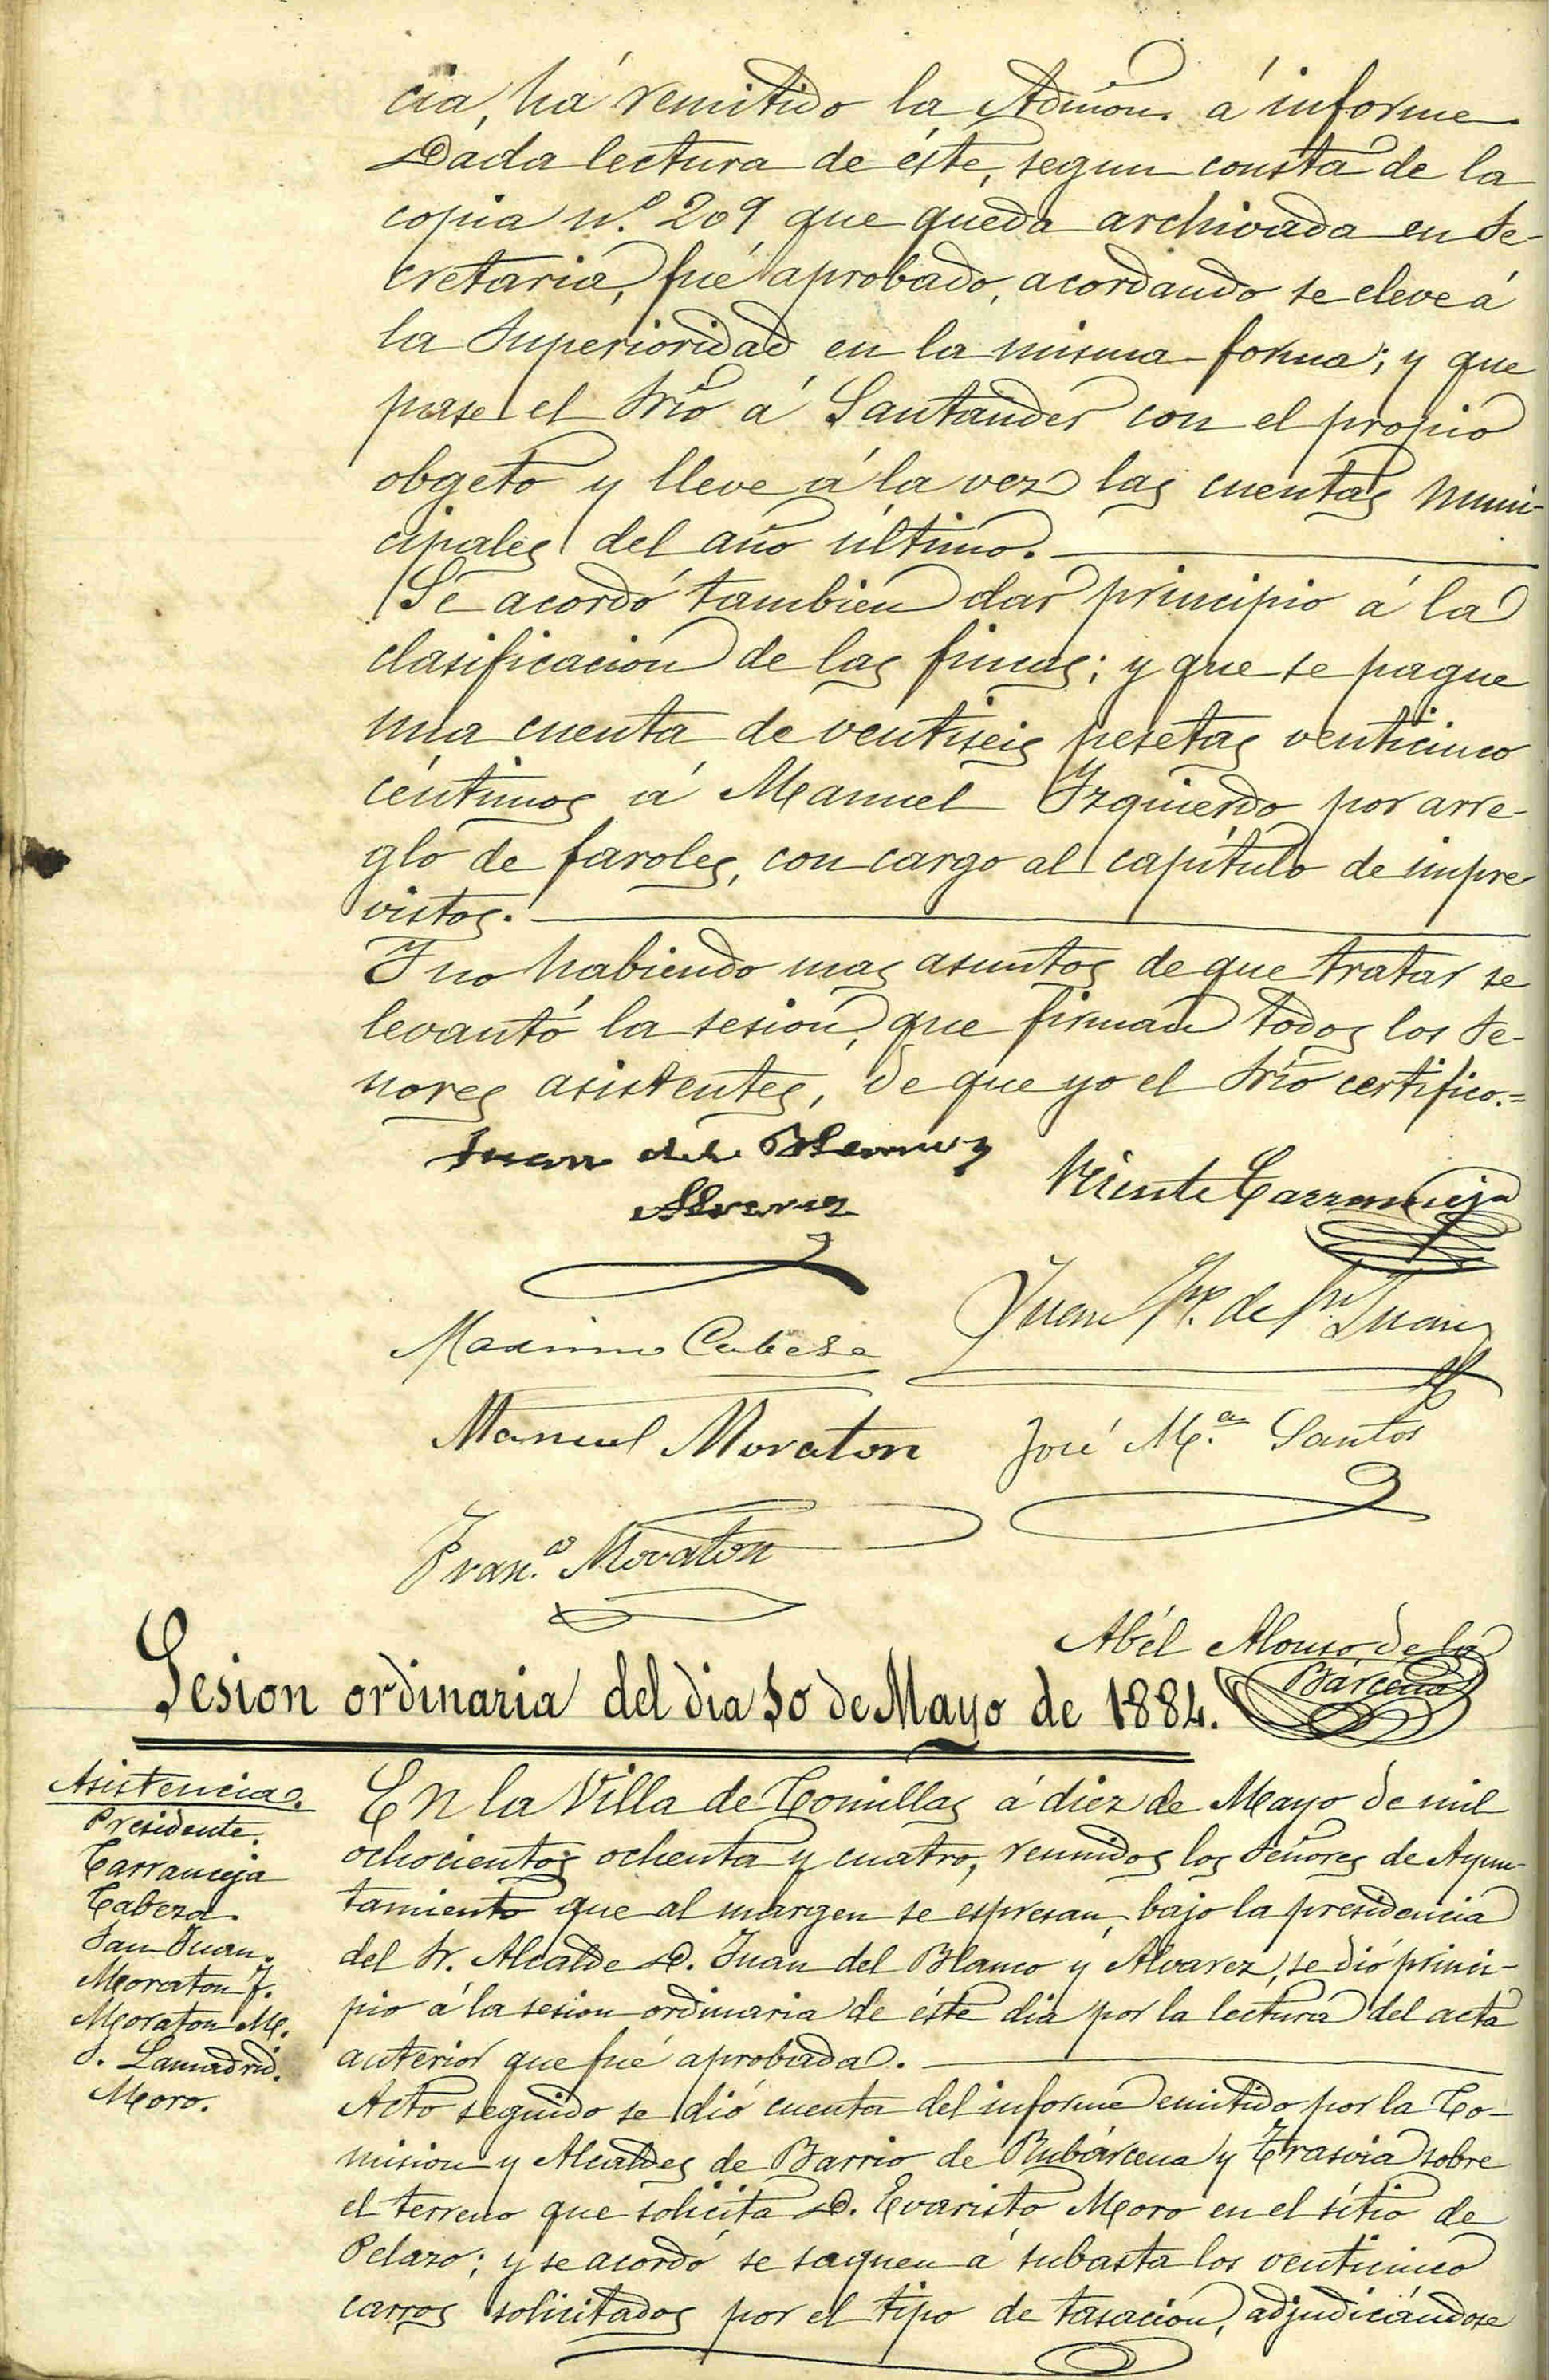 cia, há remitido la Admón. á informe.
Dada lectura de éste, segun consta de la
copia n.º 209 que queda archivada en Se-
cretaria, fué aprobado, acordando se eleve á
la Superioridad en la misma forma; y que
pase el Srio á Santander con el propio
obgeto y lleve á la vez las cuentas muni-
cipales del año último.
Se acordó tambien dar principio á la
clasificacion de las fincas; y que se pague
una cuenta de ventiseis pesetas venticinco
céntimos á Manuel Izquierdo por arre-
glo de faroles, con cargo al capítulo de impre-
vistos.
Y no habiendo mas asuntos de que tratar se
levantó la sesion, que firman todos los Se-
ñores asistentes, de que yo el Srio certifico.=
Juan del Blanco y
Alvarez
Vicente Carranceja
Maximo Cabeza
Juan de Sn. Juan
Manuel Moraton
José M.ª Santos
Fran.co Moraton
Abél Alonso de la
Bárcena
Sesion ordinaria del dia 10 de Mayo de 1884.
Asistencia.
Presidente.
Carranceja
Cabeza.
San Juan.
Moraton F.
Moraton M.
S. Lamadrid.
Moro.
En la Villa de Comillas á diez de Mayo de mil
ochocientos ochenta y cuatro, reunidos los Señores de Ayun-
tamiento que al margen se espresan, bajo la presidencia
del Sr. Alcalde D. Juan del Blanco y Alvarez, se dió princi-
pio á la sesion ordinaria de éste dia por la lectura del acta
anterior que fué aprobada.
Acto seguido se dió cuenta del informe emitido por la Co-
mision y Alcaldes de Barrio de Rubárcena y Trasvia sobre
el terreno que solicita D. Evaristo Moro en el sítio de
Pelazo; y se acordó se saquen á subasta los venticinco
carros solicitados por el tipo de tasacion, adjudicándose